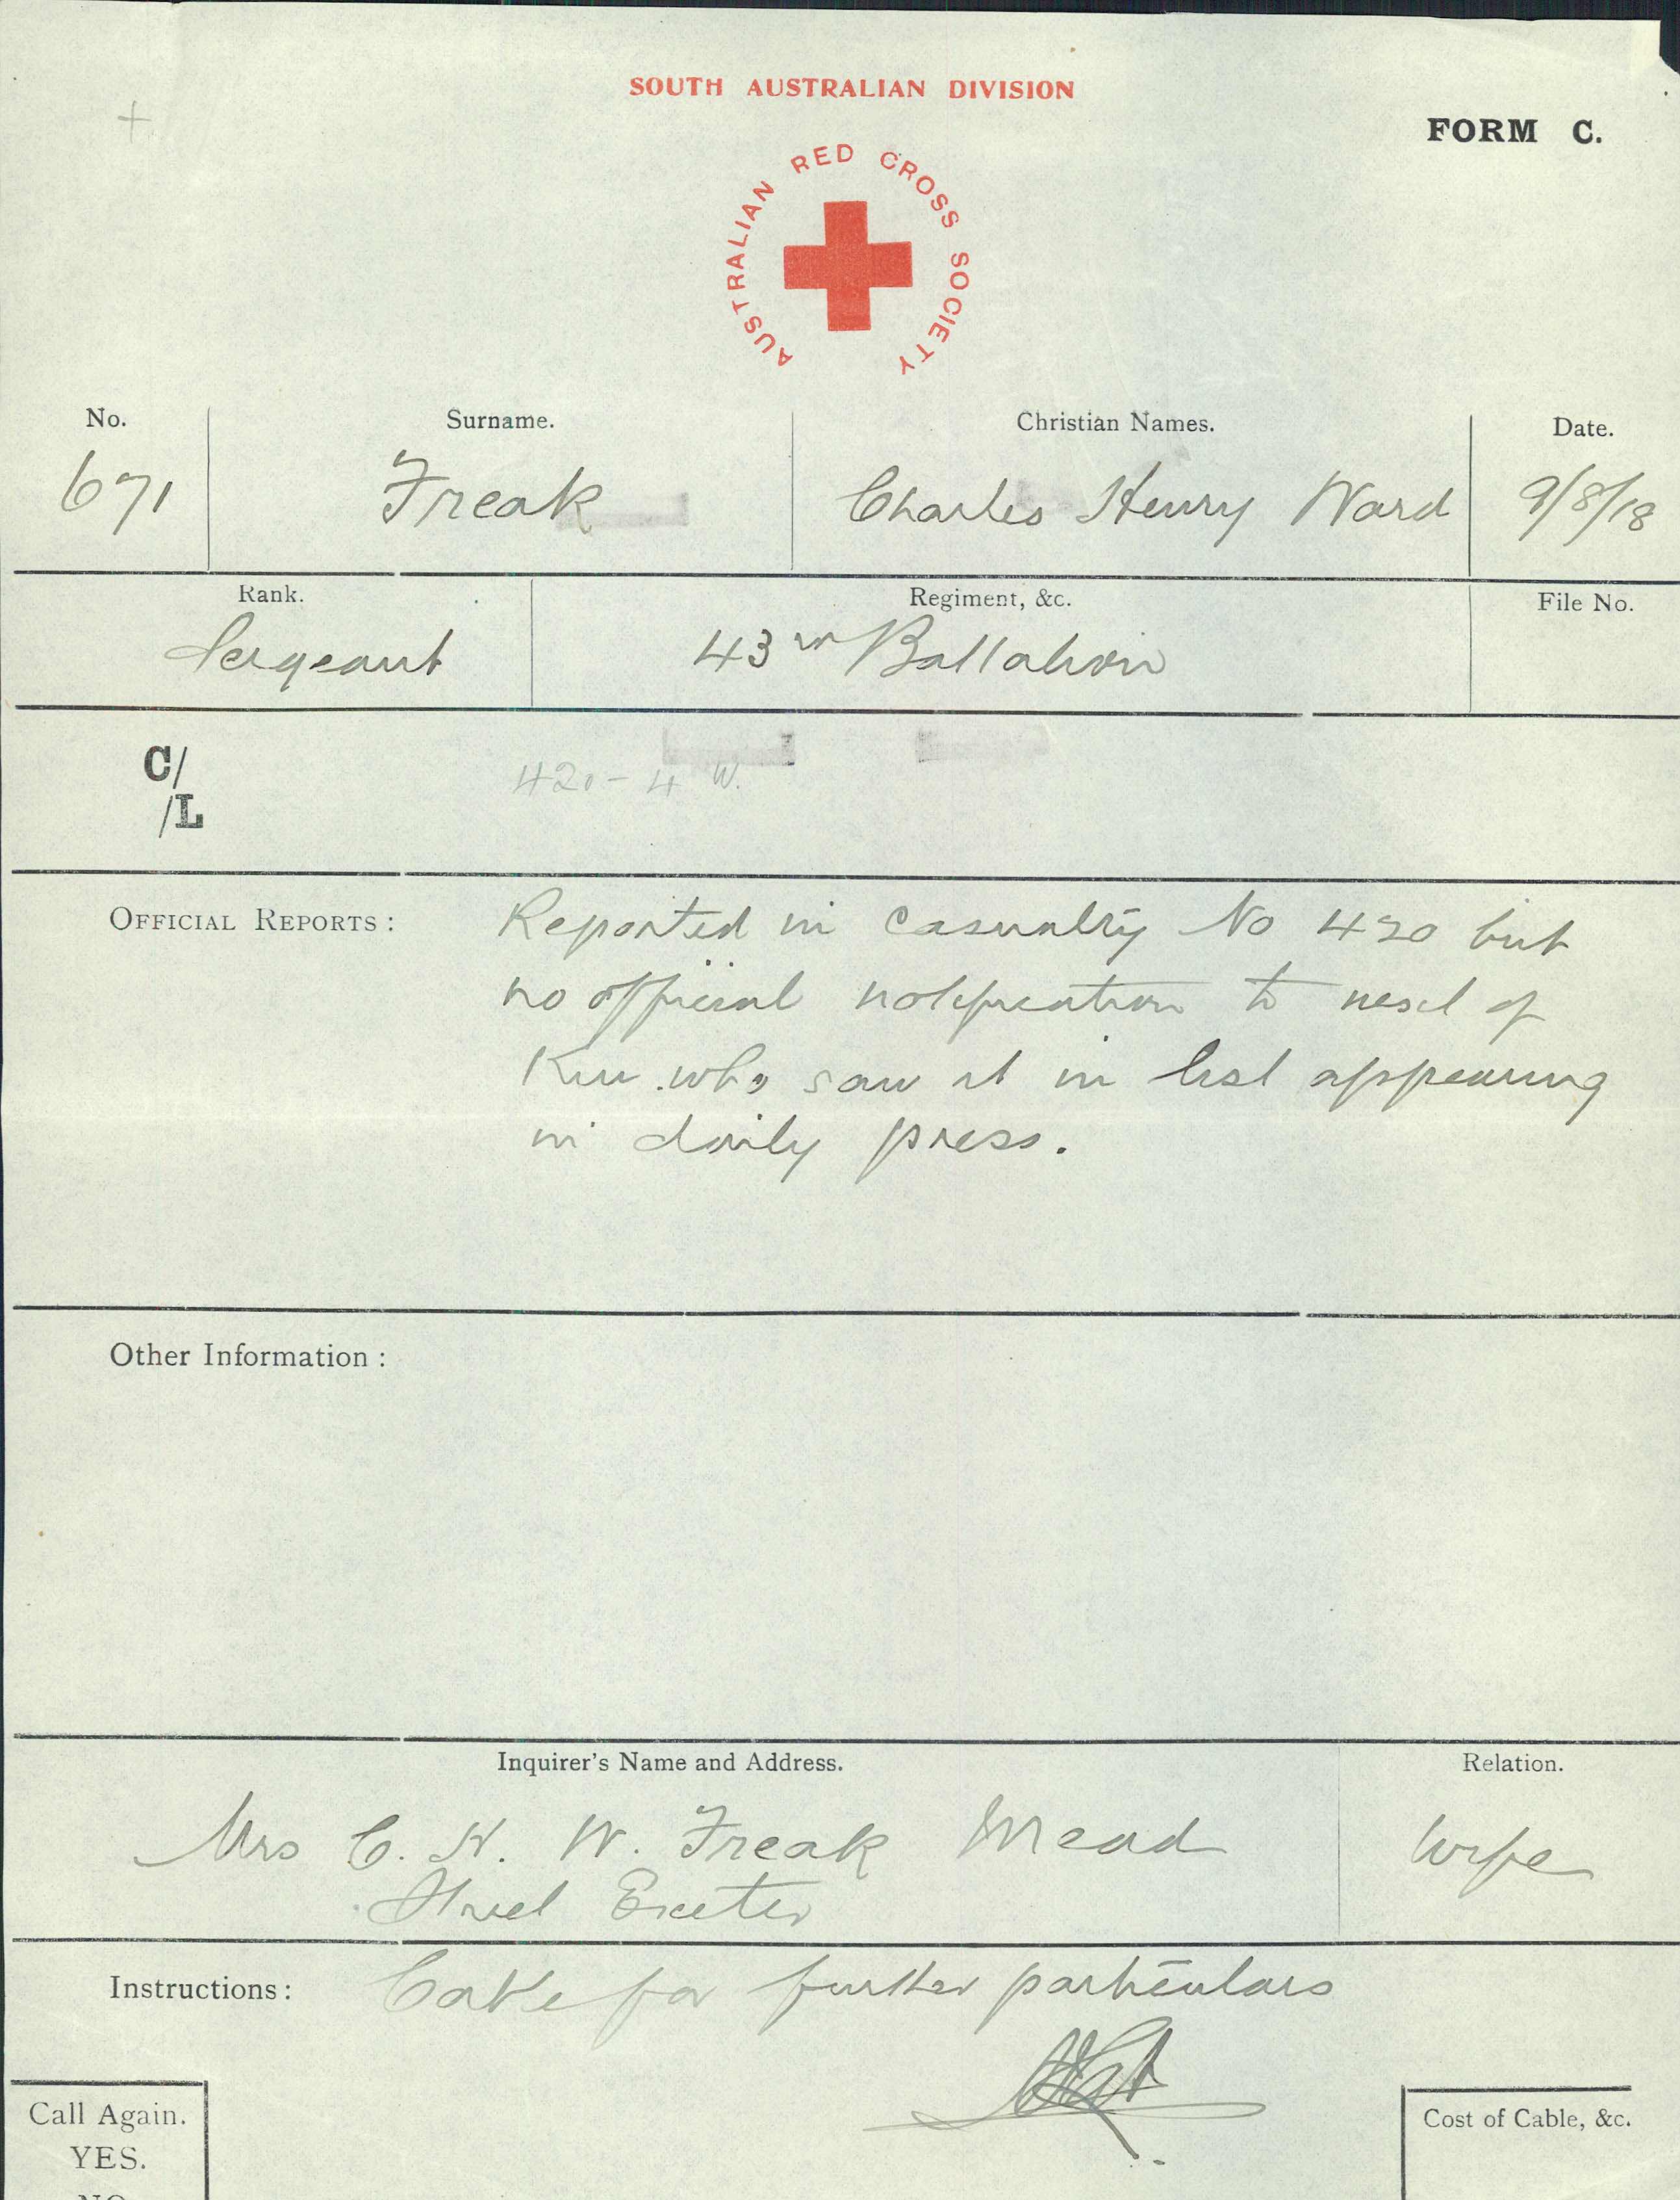 SOUTH AUSTRALIAN DIVISION
FORM C.
AUSTRALIAN RED CROSS SOCIETY
No. Surname. Christian Names. Date.
671 Freak Charles Henry Ward 9/8/18
Rank. Regiment, &c. File No.
Sergeant 43rd Battalion
C/
/L
420 - 4 W.
OFFICIAL REPORTS: Reported in Casualty No 420 but
no official notification to next of
Kin who saw it in list appearing
in daily press.
Other Information:
Inquirer's Name and Address. Relation.
Mrs C. H. W. Freak Mead Wife
Street Exeter
Instructions: Cable for further particulars
Call Again.
YES.
NO
Cost of Cable, &c.